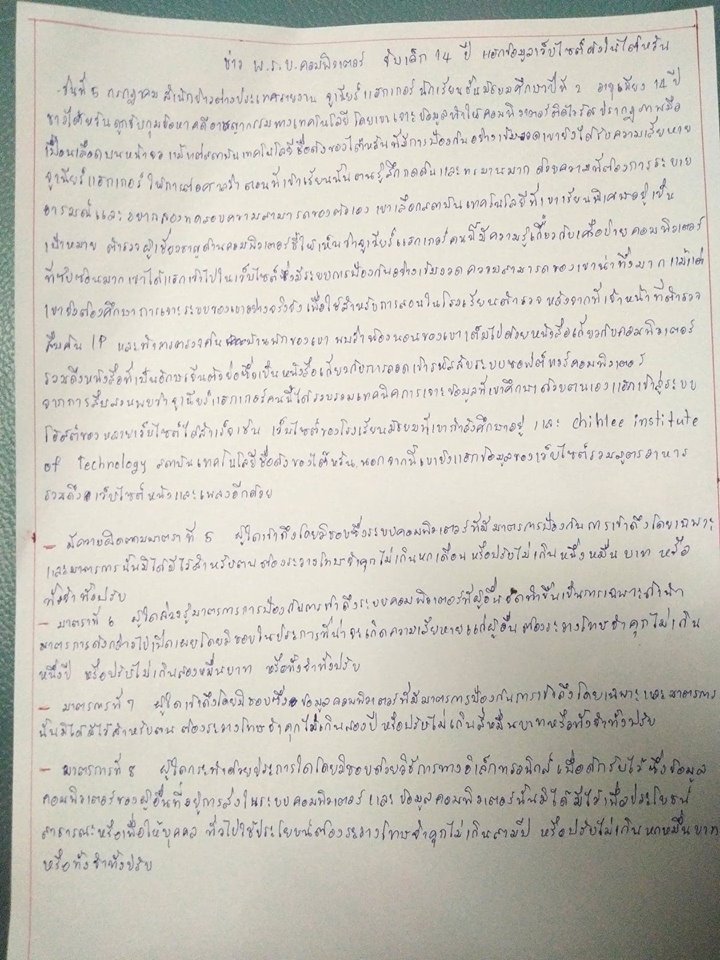 ข่าว พ.ร.บ.คอมพิวเตอร์ จับเด็ก 14 ปี แฮกข้อมูลเว็บไซต์ดังในไต้หวัน
วันที่ 5 กรกฎาคม สำนักข่าวต่างประเทศรายงาน จูเนียร์แฮกเกอร์ นักเรียนชั้นมัธยมศึกษาปีที่ 2 อายุเพียง 14 ปี
ชาวไต้หวันถูกจับกุมข้อหาคดีอาชญากรรมทางเทคโนโลยี โดยเขาเจาะข้อมูลทำให้คอมพิวเตอร์ติดไวรัส ปรากฏภาพมือ
เปื้อนเลือดบนหน้าจอ แม้แต่สถาบันเทคโนโลยีชื่อดังของไต้หวันที่มีการป้องกันอย่างเข้มงวดเขายังได้รับความเสียหาย
จูเนียร์แฮกเกอร์ ให้การต่อศาลว่า ตอนที่เขาเรียนนั้นตนรู้สึกกดดันและทรมานมาก ด้วยความที่ต้องการระบาย
อารมณ์และ อยากลองทดสอบความสามารถของตัวเอง เขาเลือกสถาบันเทคโนโลยีที่เขาเรียนพิเศษอยู่เป็น
เป้าหมาย ตำรวจผู้เชี่ยวชาญด้านคอมพิวเตอร์ชี้ให้เห็นว่าจูเนียร์แฮกเกอร์คนนี้มีความรู้เกี่ยวกับเครือข่ายคอมพิวเตอร์
ที่ซับซ้อนมาก เขาได้แฮกเข้าไปในเว็บไซต์ซึ่งมีระบบการป้องกันอย่างเข้มงวด ความสามารถของเขาน่าทึ่งมาก แม้แต่
เขายังต้องศึกษาการเจาะระบบของเขาอย่างจริงจัง เพื่อใช้สำหรับการสอนในโรงเรียนตำรวจ หลังจากที่เจ้าหน้าที่ตำรวจ
สืบค้น IP และทำการตรวจค้นบ้านพักของเขา พบว่าห้องนอนของเขาเต็มไปด้วยหนังสือเกี่ยวกับคอมพิวเตอร์
รวมถึงหนังสือที่เป็นอักษรเขียนตัวย่อซึ่งเป็นหนังสือเกี่ยวกับการถอดเข้ารหัสลับระบบซอฟต์แวร์คอมพิวเตอร์
จากการสืบสวนพบว่าจูเนียร์แฮกเกอร์คนนี้ได้รวบรวมเทคนิคการเจาะข้อมูลที่เขาศึกษาด้วยตนเองแฮกเข้าสู่ระบบ
โฮสต์ของหลายเว็บไซต์ได้สำเร็จเช่น เว็บไซต์ของโรงเรียนมัธยมที่เขากำลังศึกษาอยู่ และ Chihlee institute
of Technology สถาบันเทคโนโลยีชื่อดังของไต้หวัน นอกจากนี้เขายังแฮกข้อมูลของเว็บไซต์รวมสูตรอาหาร
รวมถึงเว็บไซต์หนังและเพลงอีกด้วย
- มีความผิดตามมาตราที่ 5 ผู้ใดเข้าถึงโดยมิชอบซึ่งระบบคอมพิวเตอร์ที่มีมาตรการป้องกันการเข้าถึงโดยเฉพาะ
และมาตรการนั้นมิได้มีไว้สำหรับตน ต้องระวางโทษจำคุกไม่เกินหกเดือน หรือปรับไม่เกินหนึ่งหมื่น บาท หรือ
ทั้งจำทั้งปรับ
- มาตราที่ 6 ผู้ใดล่วงรู้มาตรการการป้องกันการเข้าถึงระบบคอมพิวเตอร์ที่ผู้อื่นจัดทำขึ้นเป็นการเฉพาะถ้านำ
มาตรการดังกล่าวไปเปิดเผยโดยมิชอบในประการที่น่าจะเกิดความเสียหายแก่ผู้อื่น ต้องระวางโทษจำคุกไม่เกิน
หนึ่งปี หรือปรับไม่เกินสองหมื่นบาท หรือทั้งจำทั้งปรับ
- มาตรการที่ 7 ผู้ใดเข้าถึงโดยมิชอบซึ่งข้อมูลคอมพิวเตอร์ที่มีมาตรการป้องกันการเข้าถึงโดยเฉพาะและมาตรการ
นั้นมิได้มีไว้สำหรับตน ต้องระวางโทษจำคุกไม่เกินสองปี หรือปรับไม่เกินสี่หมื่นบาทหรือทั้งจำทั้งปรับ
- มาตรการที่ 8 ผู้ใดกระทำด้วยประการใดโดยมิชอบด้วยวิธีการทางอิเล็กทรอนิกส์ เพื่อดักรับไว้ซึ่งข้อมูล
คอมพิวเตอร์ของผู้อื่นที่อยู่การส่งในระบบคอมพิวเตอร์และ ข้อมูลคอมพิวเตอร์นั้นมิได้มีไว้เพื่อประโยชน์
สาธารณะหรือเพื่อให้บุคคล ทั่วไปใช้ประโยชน์ต้องระวางโทษจำคุกไม่เกินสามปี หรือปรับไม่เกินหกหมื่นบาท
หรือทั้งจำทั้งปรับ